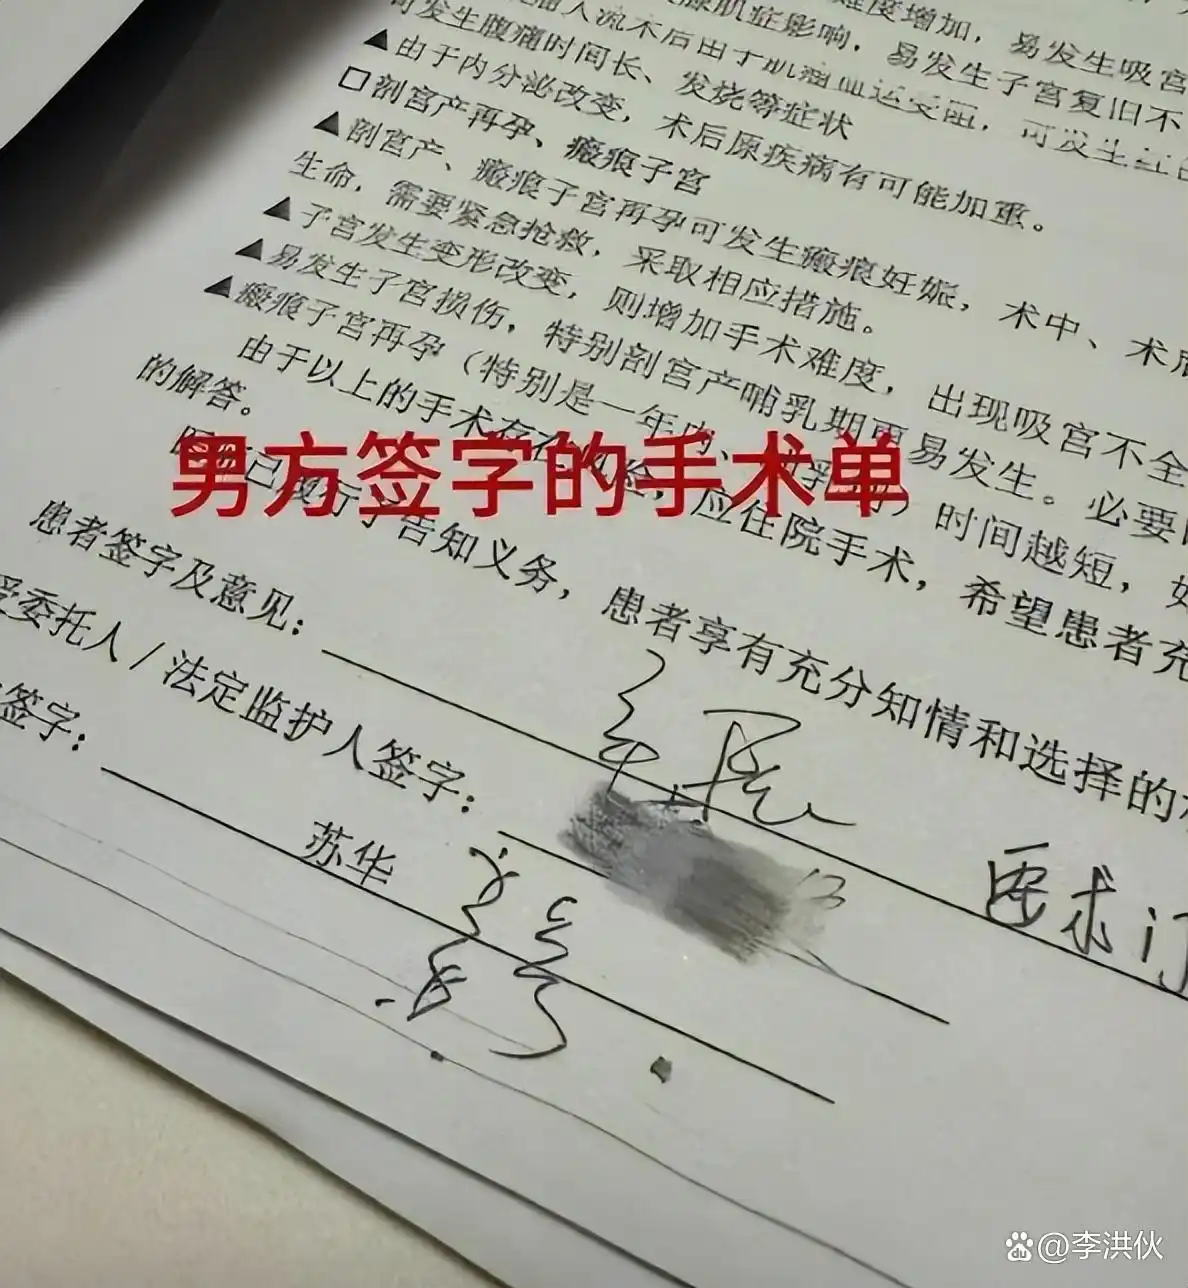 难度增加，易发生吸宫
腺肌症影响，易发生子宫复旧不
人流术后由于肌瘤血运受阻，可发生红
可发生腹痛时间长、发烧等症状
▲由于内分泌改变，术后原疾病有可能加重。
□剖宫产再孕、瘢痕子宫
▲剖宫产、瘢痕子宫再孕可发生瘢痕妊娠，术中、术后
生命，需要紧急抢救，采取相应措施。
▲子宫发生变形改变，则增加手术难度，出现吸宫不全
▲易发生子宫损伤，特别剖宫产哺乳期更易发生。必要
▲瘢痕子宫再孕（特别是一年内、时间越短，
由于以上的手术存在，应住院手术，希望患者充
的解答。
告知义务，患者享有充分知情和选择的
男方签字的手术单
患者签字及意见：
要求
受委托人/法定监护人签字：
签字：
苏华
@李洪伙